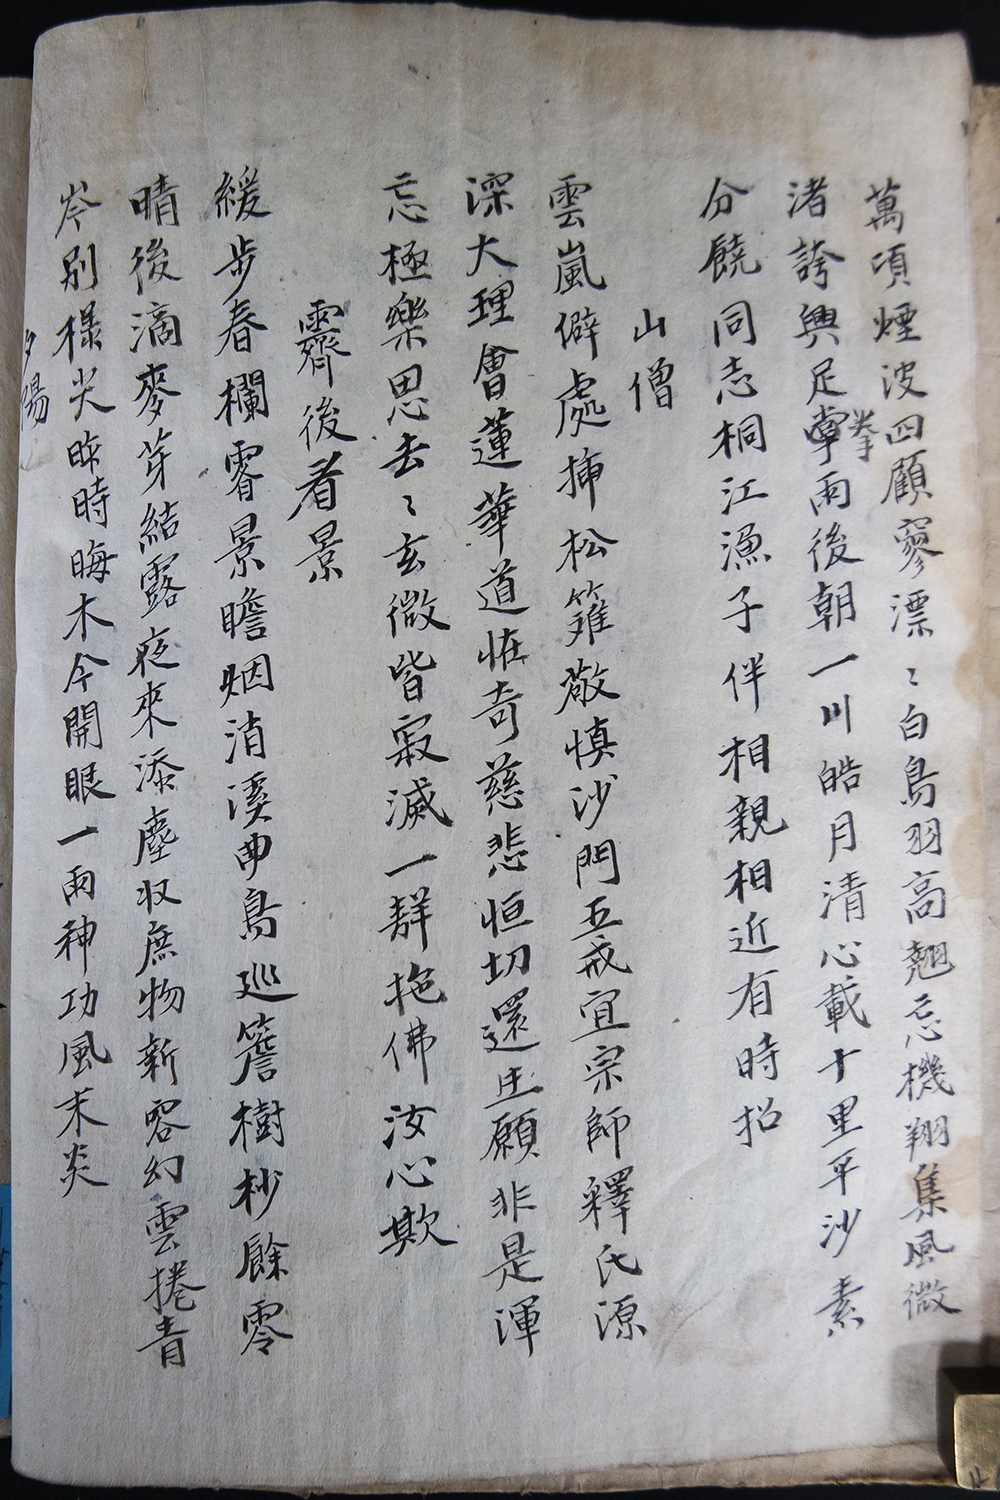 萬頃煙波四顧寥漂〻白鳥羽高翹忘機翔集風微
渚誇興足掌雨後朝一川皓月清心載十里平沙素
拳
分饒同志桐江漁子伴相親相近有時招
山僧
雲嵐僻處挿松籬敬慎沙門五戒宜宗師釋氏源
深大理會蓮華道恠奇慈悲恒切還生願非是渾
忘極樂思去〻玄微皆寂滅一群拖佛汝心欺
霽後看景
緩步春欄霽景瞻烟消溪曲鳥巡簷樹杪餘零
晴後滴麥芽結露夜來添塵収庶物新容幻雲捲青
岑別樣尖昨時晦木今開眼一雨神功風末炎
夕陽